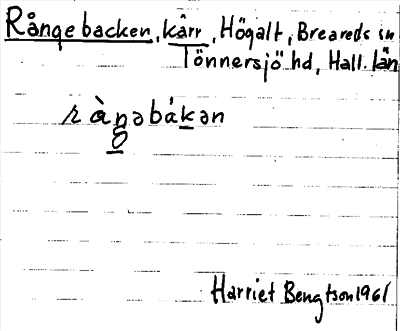 Rångebacken, kärr, Högalt, Breareds sn
Tönnersjö hd, Hall. län
Harriet Bengtson 1961